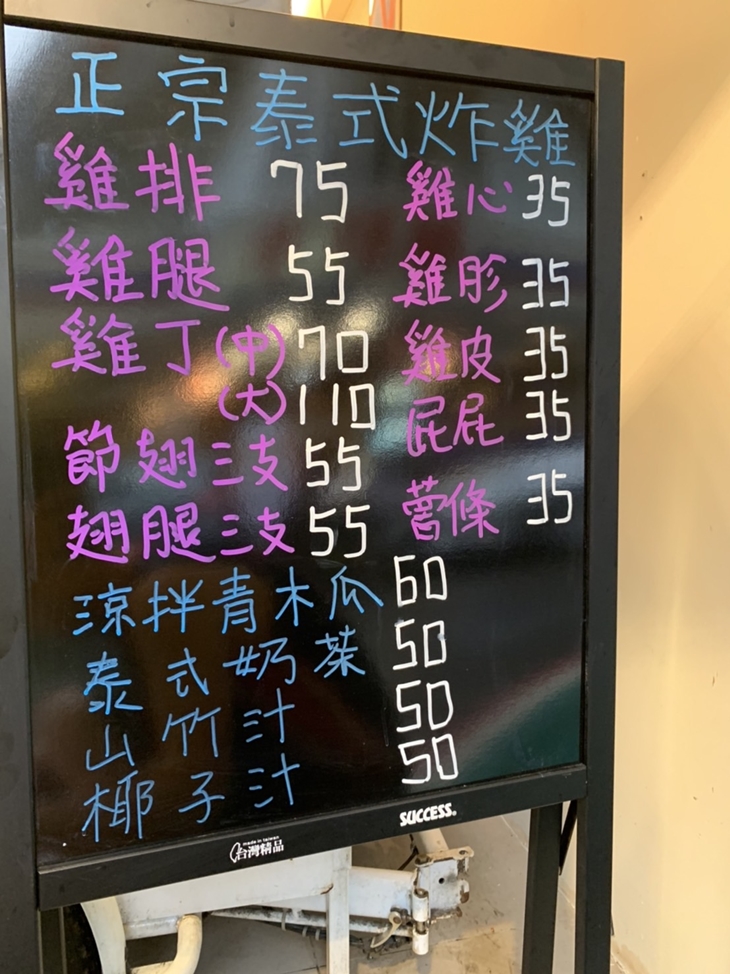 正宗泰式炸雞
雞排 75 雞心 35
雞腿 55 雞胗 35
雞丁(中) 70 雞皮 35
(大) 110 屁屁 35
節翅三支 55
翅腿三支 55 薯條 35
涼拌青木瓜 60
泰式奶茶 50
山竹汁 50
椰子汁 50
SUCCESS®
made in taiwan
台灣精品